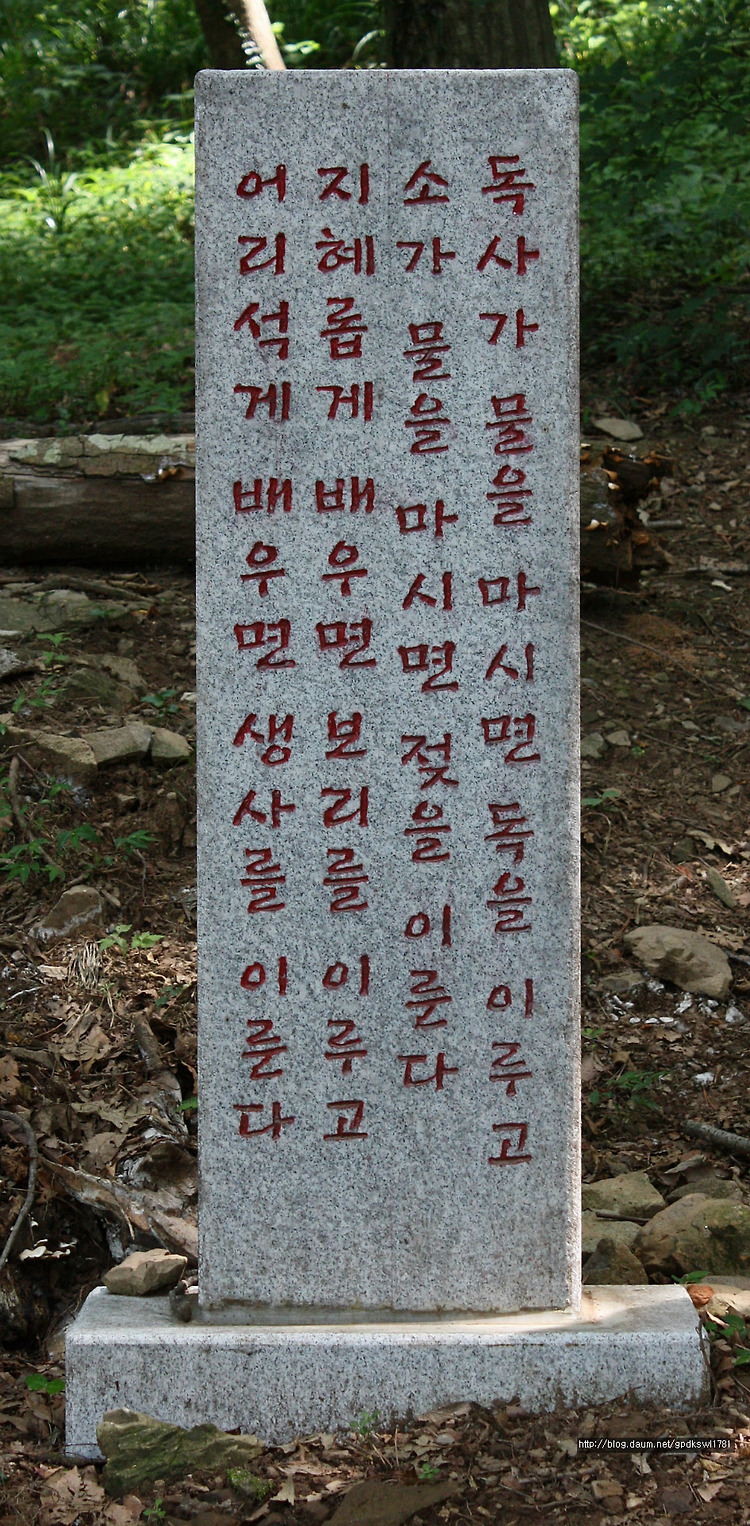 독사가 물을 마시면 독을 이루고
소가 물을 마시면 젖을 이룬다
지혜롭게 배우면 보리를 이루고
어리석게 배우면 생사를 이룬다
http://blog.daum.net/gpdkswl1781